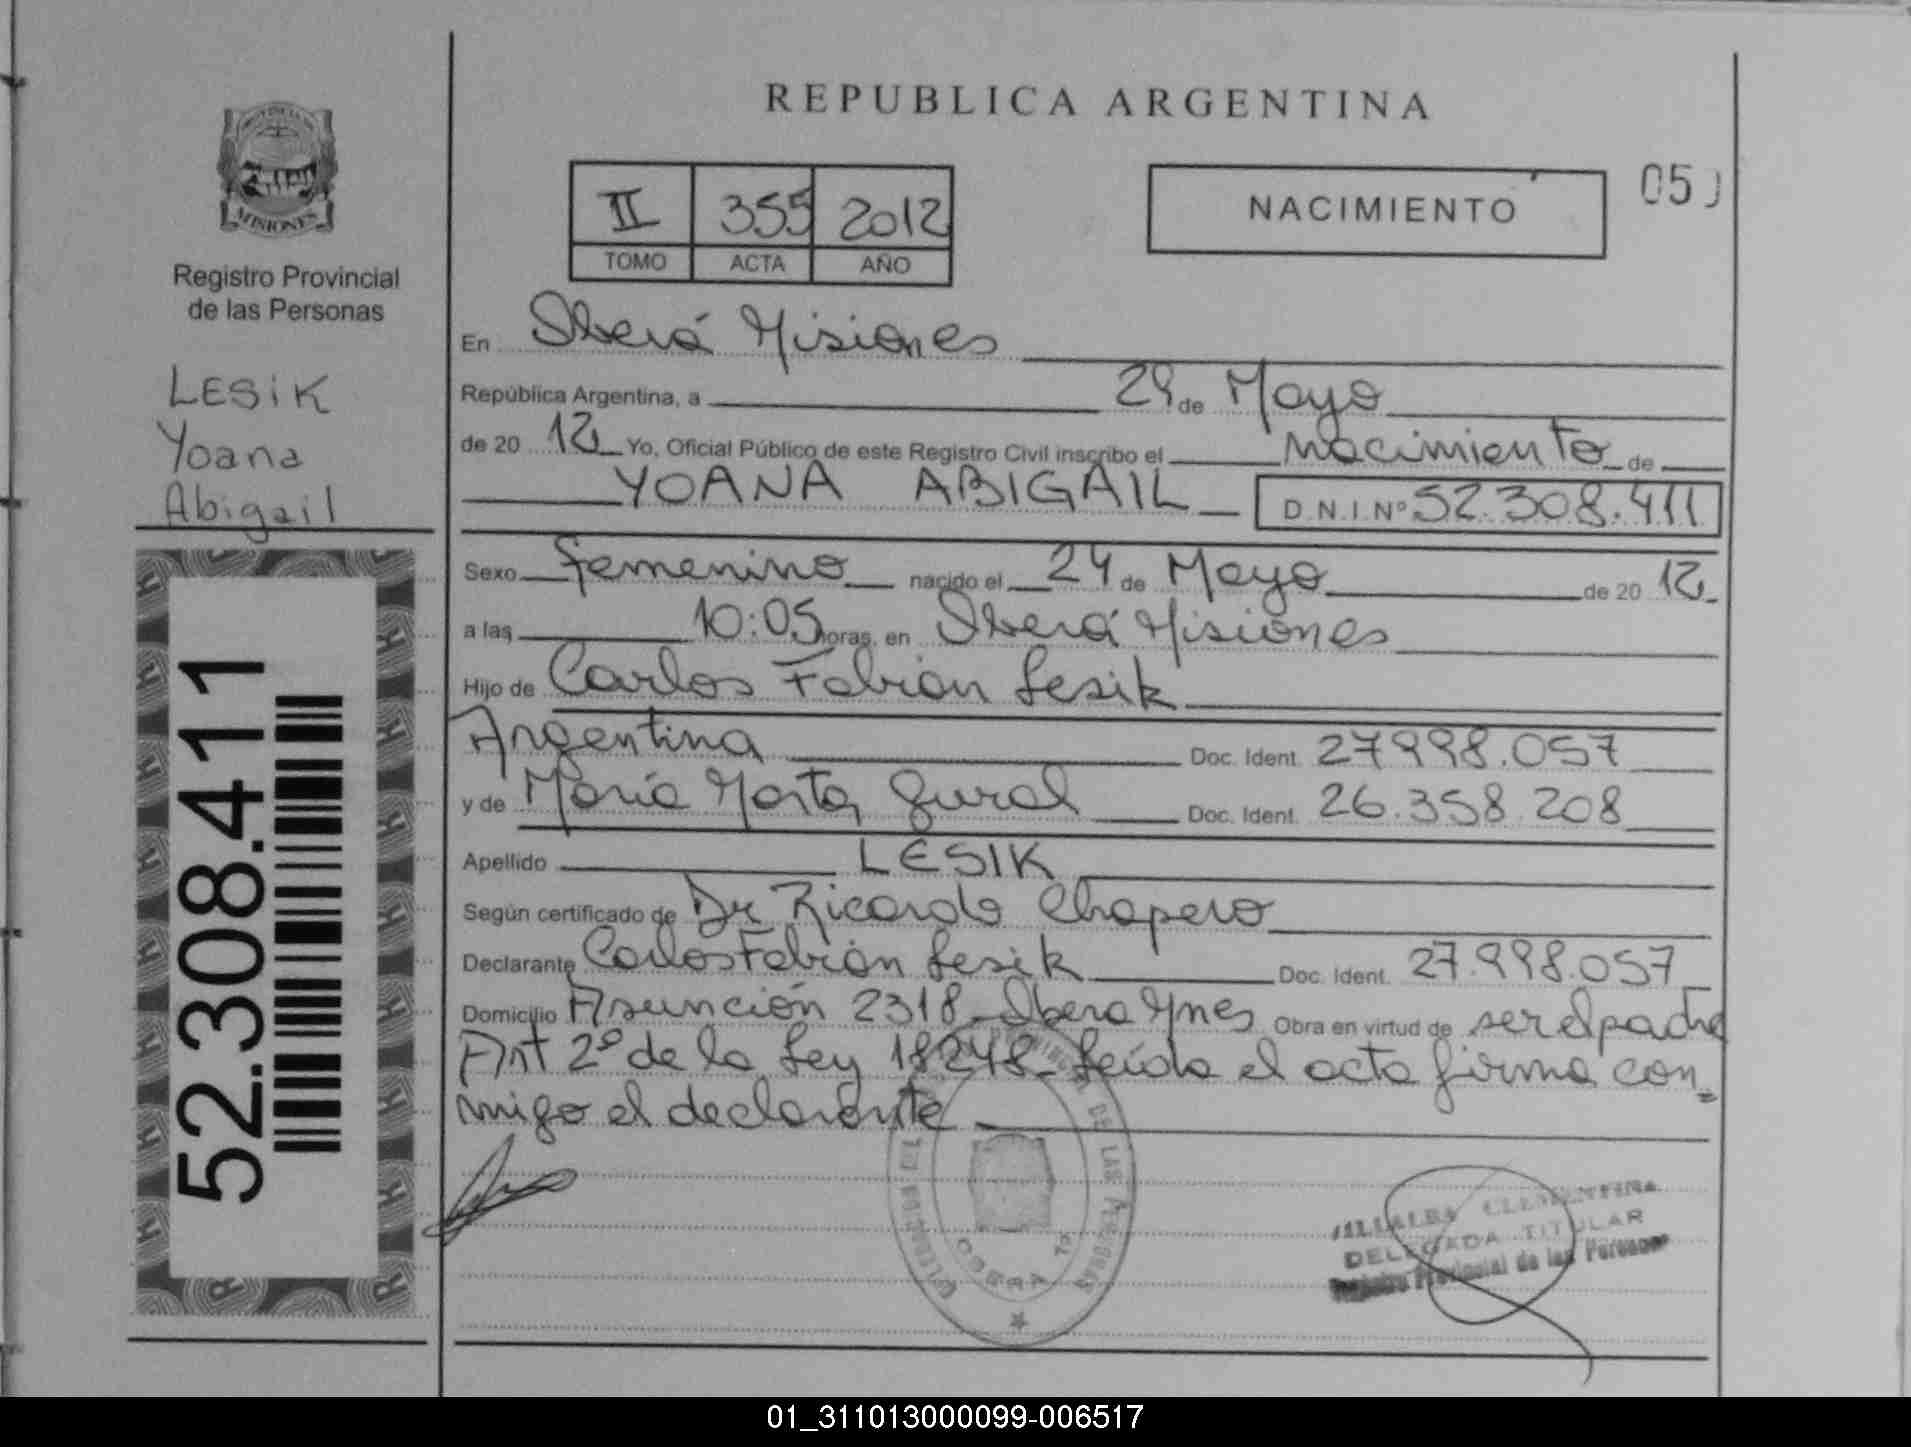 REPUBLICA ARGENTINA
MISIONES
Registro Provincial
de las Personas
LESIK
Yoana
Abigail
52.308.411
II 355 2012
TOMO ACTA AÑO
NACIMIENTO
05
En Oberá Misiones
República Argentina, a 29 de Mayo
de 20 12 Yo, Oficial Público de este Registro Civil inscribo el nacimiento de
YOANA ABIGAIL D.N.I. Nº 52.308.411
Sexo femenino nacido el 24 de Mayo de 20 12
a las 10:05 horas, en Oberá Misiones
Hijo de Carlos Fabián Lesik
Argentina Doc. Ident. 27.998.057
y de María Marta Gural Doc. Ident. 26.358.208
Apellido LESIK
Según certificado de Dr Ricardo Chapero
Declarante Carlos Fabián Lesik Doc. Ident. 27.998.057
Domicilio Asunción 2318 Obera Mnes Obra en virtud de ser el padre
Art 2º de la Ley 18248 Leída el acta firma con
migo el declarante
DE LAS PERSONAS
OBERA
VILLALBA CLEMENTINA
DELEGADA TITULAR
Registro Provincial de las Personas
01_311013000099-006517